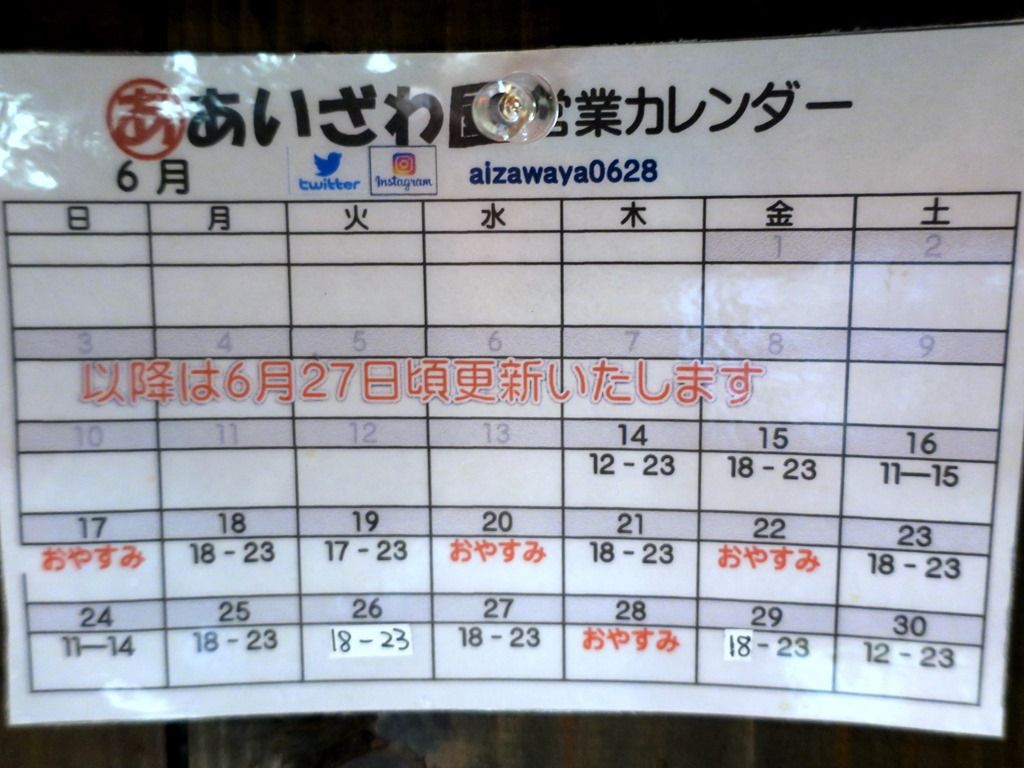 あ あいざわ 営業カレンダー
6月 twitter Instagram aizawaya0628
日 月 火 水 木 金 土
1 2
3 4 5 6 7 8 9
以降は6月27日頃更新いたします
10 11 12 13 14 15 16
12-23 18-23 11—15
17 18 19 20 21 22 23
おやすみ 18-23 17-23 おやすみ 18-23 おやすみ 18-23
24 25 26 27 28 29 30
11—14 18-23 18-23 18-23 おやすみ 18-23 12-23